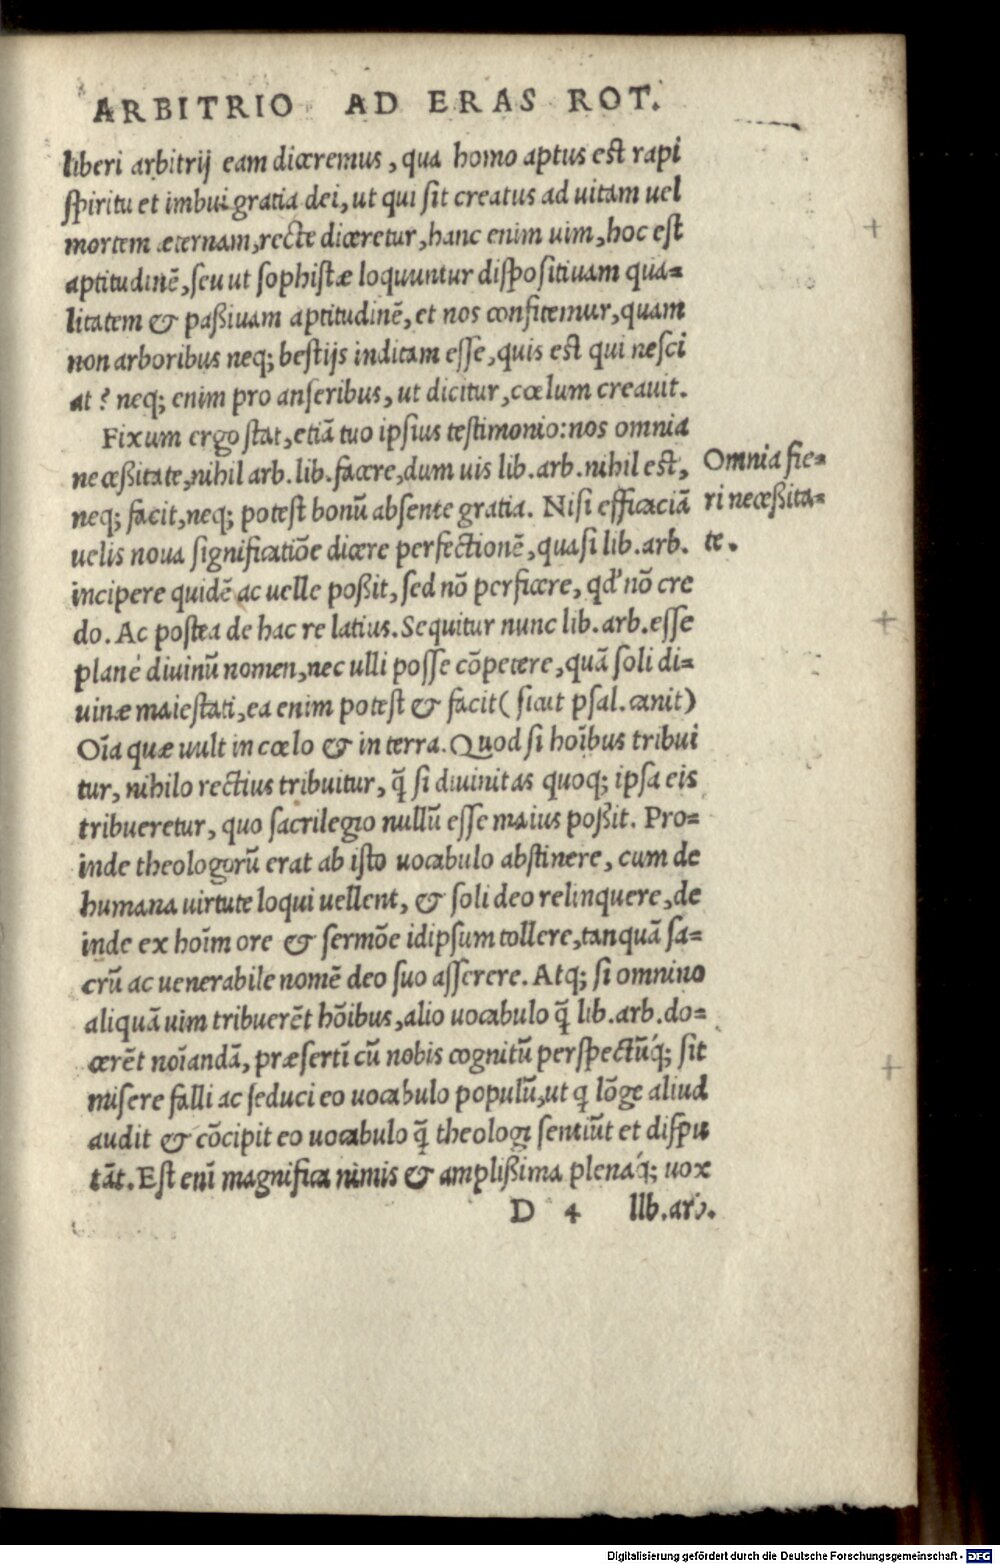 ARBITRIO AD ERAS ROT.
liberi arbitrij eam diceremus, qua homo aptus est rapi
spiritu et imbui gratia dei, ut qui sit creatus ad uitam uel
mortem æternam, recte diceretur, hanc enim uim, hoc est
aptitudinē, seu ut sophistæ loquuntur dispositiuam qua=
litatem & paßiuam aptitudinē, et nos confitemur, quam
non arboribus neq; bestijs inditam esse, quis est qui nesci
at? neq; enim pro anseribus, ut dicitur, cœlum creauit.
Fixum ergo stat, etiā tuo ipsius testimonio: nos omnia
neceßitate, nihil arb. lib. facere, dum uis lib. arb. nihil est,
neq; facit, neq; potest bonū absente gratia. Nisi efficaciā
uelis noua significatiōe dicere perfectionē, quasi lib. arb.
incipere quidē ac uelle poßit, sed nō perficere, qđ nō cre
do. Ac postea de hac re latius. Sequitur nunc lib. arb. esse
plane diuinū nomen, nec ulli posse cōpetere, quā soli di=
uinæ maiestati, ea enim potest & facit (sicut psal. canit)
Oīa quæ uult in cœlo & in terra. Quod si hoībus tribui
tur, nihilo rectius tribuitur, q̄ si diuinitas quoq; ipsa eis
tribueretur, quo sacrilegio nullū esse maius poßit. Pro=
inde theologorū erat ab isto uocabulo abstinere, cum de
humana uirtute loqui uellent, & soli deo relinquere, de
inde ex hoīm ore & sermōe idipsum tollere, tanquā sa=
crū ac uenerabile nomē deo suo asserere. Atq; si omnino
aliquā uim tribuerēt hōibus, alio uocabulo q̄ lib. arb. do=
cerēt noīandā, præsertī cū nobis cognitū perspectūq́; sit
misere falli ac seduci eo uocabulo populū, ut q lōge aliud
audit & cōcipit eo uocabulo q̄ theologi sentiūt et dispu
tāt. Est enī magnifica nimis & amplißima plenaq́; uox
D 4 lib. arb.
Omnia fie=
ri neceßita=
te.
Digitalisierung gefördert durch die Deutsche Forschungsgemeinschaft - DFG